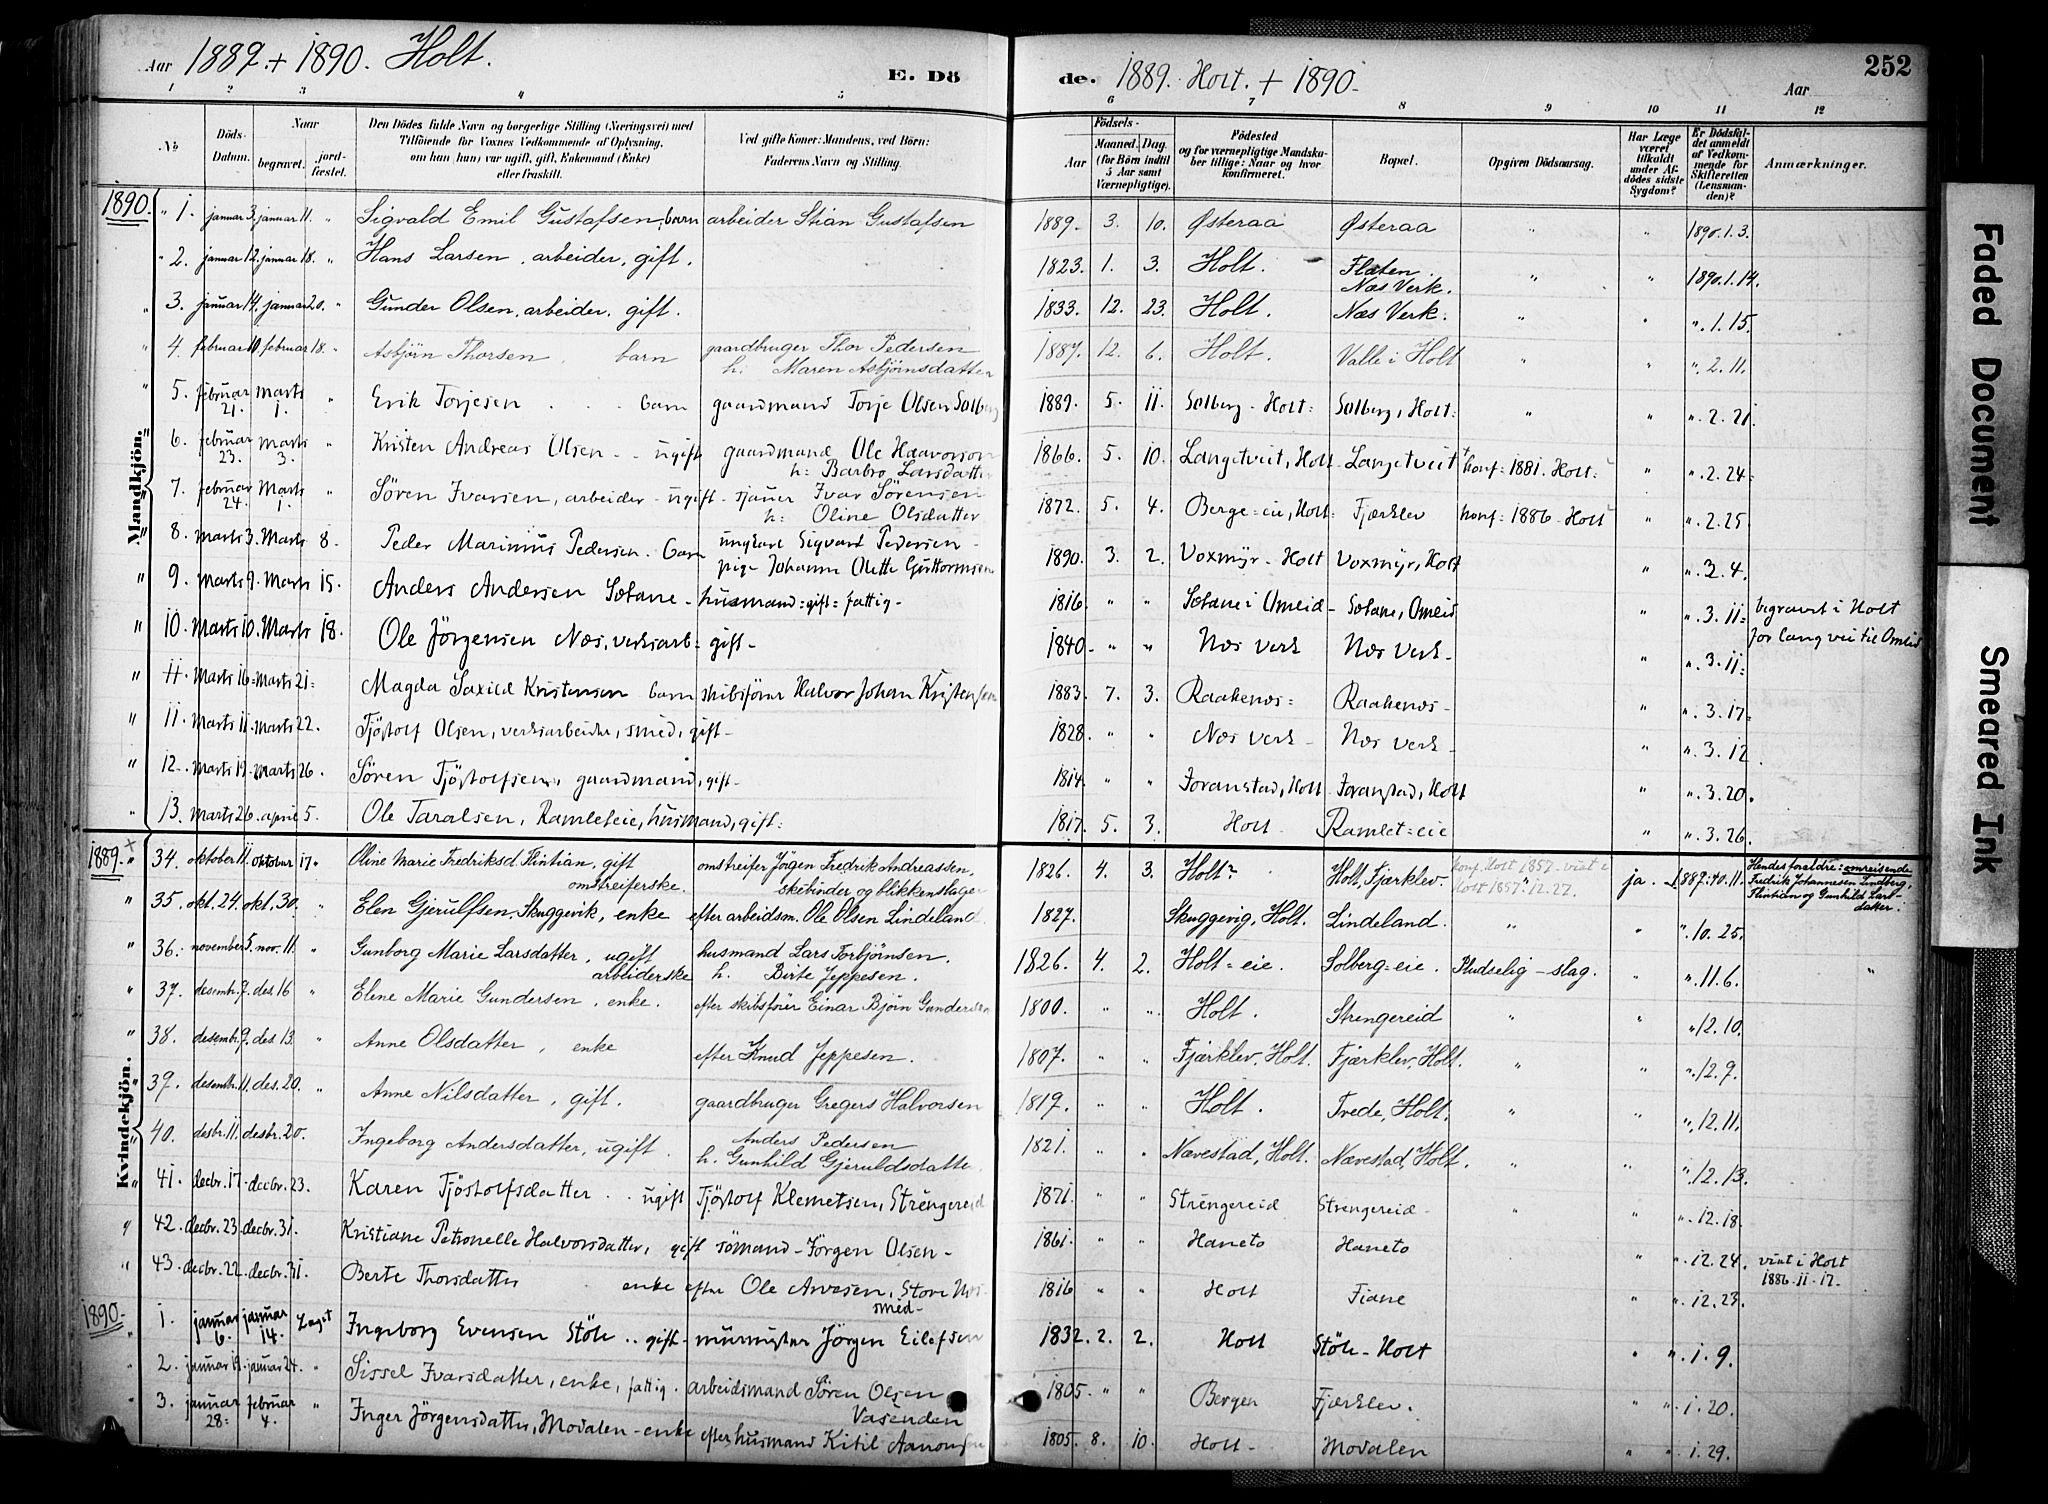 Aar 1889. + 1890. Holt.
E. Dö
de. 1889. Holt. + 1890.
Aar
252
1 2 3 4 5 6 7 8 9 10 11 12
No
Döds-Datum.
Naar
begravet.
jord-fæstet.
Den Dödes fulde Navn og borgerlige Stilling (Næringsvei) med
Tilföiende for Voxnes Vedkommende af Oplysning,
om han (hun) var ugift, gift, Enkemand (Enke)
eller fraskilt.
Ved gifte Koner: Mandens, ved Börn:
Faderens Navn og Stilling.
Födsels-
Aar
Maaned. Dag.
(for Börn indtil
5 Aar samt
Værnepligtige).
Födested
og for værnepligtige Mandska-
ber tillige: Naar og hvor
konfirmeret.
Bopæl.
Opgiven Dödsaarsag.
Har Læge
været
tilkaldt
under Af-
dödes sidste
Sygdom?
Er Dödsfal-
det anmeldt
af Vedkom-
mende for
Skifteretten
(Lensman-
den)?
Anmærkninger.
Mandkjön.
1890. " 1. januar 3. januar 11. " Sigvald Emil Gustafsen, barn arbeider Stian Gustafsen 1889. 3. 10. Østeraa Østeraa " " 1890.1.3.
" 2. januar 12. januar 18. " Hans Larsen, arbeider, gift. 1823. 1. 3. Holt. Flaten. Næs Verk. " " 1890.1.14.
" 3. januar 14. januar 20. " Gunder Olsen, arbeider, gift. 1833. 12. 23. Holt. Næs Verk. " " ". 1. 15.
" 4. februar 10. februar 18. " Asbjörn Thorsen, barn gaardbruger Thor Pedersen
h: Maren Asbjörnsdatter 1887. 12. 6. Holt. Valle i Holt " " ". 2. 11.
" 5. februar 21. marts 1. " Erik Torjesen barn gaardmand Torje Olsen Solberg 1889. 5. 11. Solberg - Holt: Solberg, Holt: " " ". 2. 21.
" 6. februar 23. marts 3. " Kristen Andreas Olsen - ugift gaardmand Ole Haavorsen
h: Barbro Larsdatter 1866. 5. 10. Langetveit, Holt Langetveit konf: 1881. Holt: " ". 2. 24.
" 7. februar 24. marts 1. " Sören Ivarsen, arbeider - ugift - sjauer Ivar Sörensen
h: Oline Olsdatter 1872. 5. 4. Berge=eie, Holt: Fjærklev konf= 1886. Holt " ". 2. 25.
" 8. marts 3. Marts 8. Peder Marinius Pedersen. barn ungkarl Sigvart Pedersen -
pige Johanne Olette Guttormsen 1890. 3. 2. Voxmyr - Holt Voxmyr, Holt " ". 3. 4.
" 9. marts 9. Marts 15. Anders Andersen Sætane - husmand = gift = fattig - 1816. " " Sætane i Omeid - Sætane, Omeid " ". 3. 11= begravet i Holt
for lang vei til Omlid
" 10. Marts 10. Marts 18. Ole Jörgensen Næs, verksarb= gift - 1840. " " Næs verk Næs verk - " ". 3. 11=
" 11. Marts 16= marts 21= Magda Saxild Kristensen barn skibsförer Halvor Johan Kristensen 1883. 7. 3. Raakenæs= Raakenæs - " ". 3. 17=
" 11. Marts 11. Marts 22. Tjöstolf Olsen, verksarbeider, smed, gift - 1828. " " Næs verk - Næs verk - " ". 3. 12.
" 12. Marts 19. Marts 26. Sören Tjöstolfsen, gaardmand, gift - 1814. " " Foranstad, Holt Foranstad, Holt " ". 3. 20.
" 13. marts 26. april 5. Ole Taralsen, Ramleteie, husmand, gift= 1817. 5. 3. Holt Ramlet=eie " ". 3. 26.
Kvindekjön.
1889. " 34. oktober 11. oktober 17. Oline Marie Fredriksd. Flintian, gift
omstreiferske. omstreifer Jörgen Fredrik Andreassen,
skebinder og blikkenslager 1826. 4. 3. Holt Holt, Fjærklev. konf. Holt 1857. viet i
Holt 1857. 12. 27. ja. 1889. 10. 11. Hendes foraldre: omreisende
Fredrik Johannesen Lindberg,
Flintian og Gunhild Lars-
datter.
" 35. okt. 24. okt. 30. " Elen Gjerulfsen Skuggevik, enke efter arbeidsm. Ole Olsen Lindeland 1827. Skuggevig, Holt. Lindeland. " " ". 10. 25.
" 36. november 5. nov. 11. " Gunborg Marie Larsdatter, ugift
arbeiderske husmand Lars Torbjörnsen.
h. Birte Jeppesen. 1826. 4. 2. Holt=eie. Solberg=eie. Pludselig - slag. " ". 11. 6. "
" 37. desemb. 7. des 16 " Elene Marie Gundersen, enke. efter skibsförer Einar Björn Gundersen 1800. " " Holt. Strengereid " " ". 12. 10.
" 38. desemb. 9. des. 13. " Anne Olsdatter, enke efter Knud Jeppesen. 1807. " " Fjærklev, Holt. Fjærklev, Holt. " " ". 12. 9.
" 39. desemb. 11. des. 20. " Anne Nilsdatter, gift. gaardbruger Gregers Halvorsen 1819. " " Holt. Trede, Holt. " " ". 12. 11.
" 40. desbr. 11. desbr. 20. Ingeborg Andersdatter, ugift. Anders Pedersen
h. Gunhild Gjeruldsdatter 1821. " " Nævestad, Holt. Nævestad, Holt. " " ". 12. 13.
" 41. decbr. 17. decbr. 23. Karen Tjöstolfsdatter ugift Tjöstolf Klemetsen, Strengereid 1871. " " Strengereid Strengereid - " " ". 12. 18.
" 42. decbr. 23. decbr. 31. Kristiane Petronelle Halvorsdatter, gift sömand - Jörgen Olsen - 1861. " " Haneto Haneto " ". 12. 24. viet i Holt
1886. 11. 17.
" 43. decbr. 22. decbr. 31. Berte Thorsdatter enke efter Ole Arvesen, Store Næs
smed - 1816 " " Holt Fiane " ". 12. 23.
1890. 1. januar 6. januar 14. Laget Ingeborg Evensen Stöle gift - murmester Jörgen Eilefsen 1832. 2. 2. Holt Stöle - Holt " ". 1. 9.
" 2. januar 19. januar 24. " Sissel Ivarsdatter, enke, fattig. arbeidsmand Sören Olsen
Vasenden 1805. " " Bergen Fjærklev. " ". 1. 20.
" 3. januar 28= februar 4. " Inger Jörgensdatter, Modalen - enke efter husmand Kitil Aanonsen 1805. 8. 10. Holt - Modalen " ". 1. 29.
Faded Document
Smeared Ink